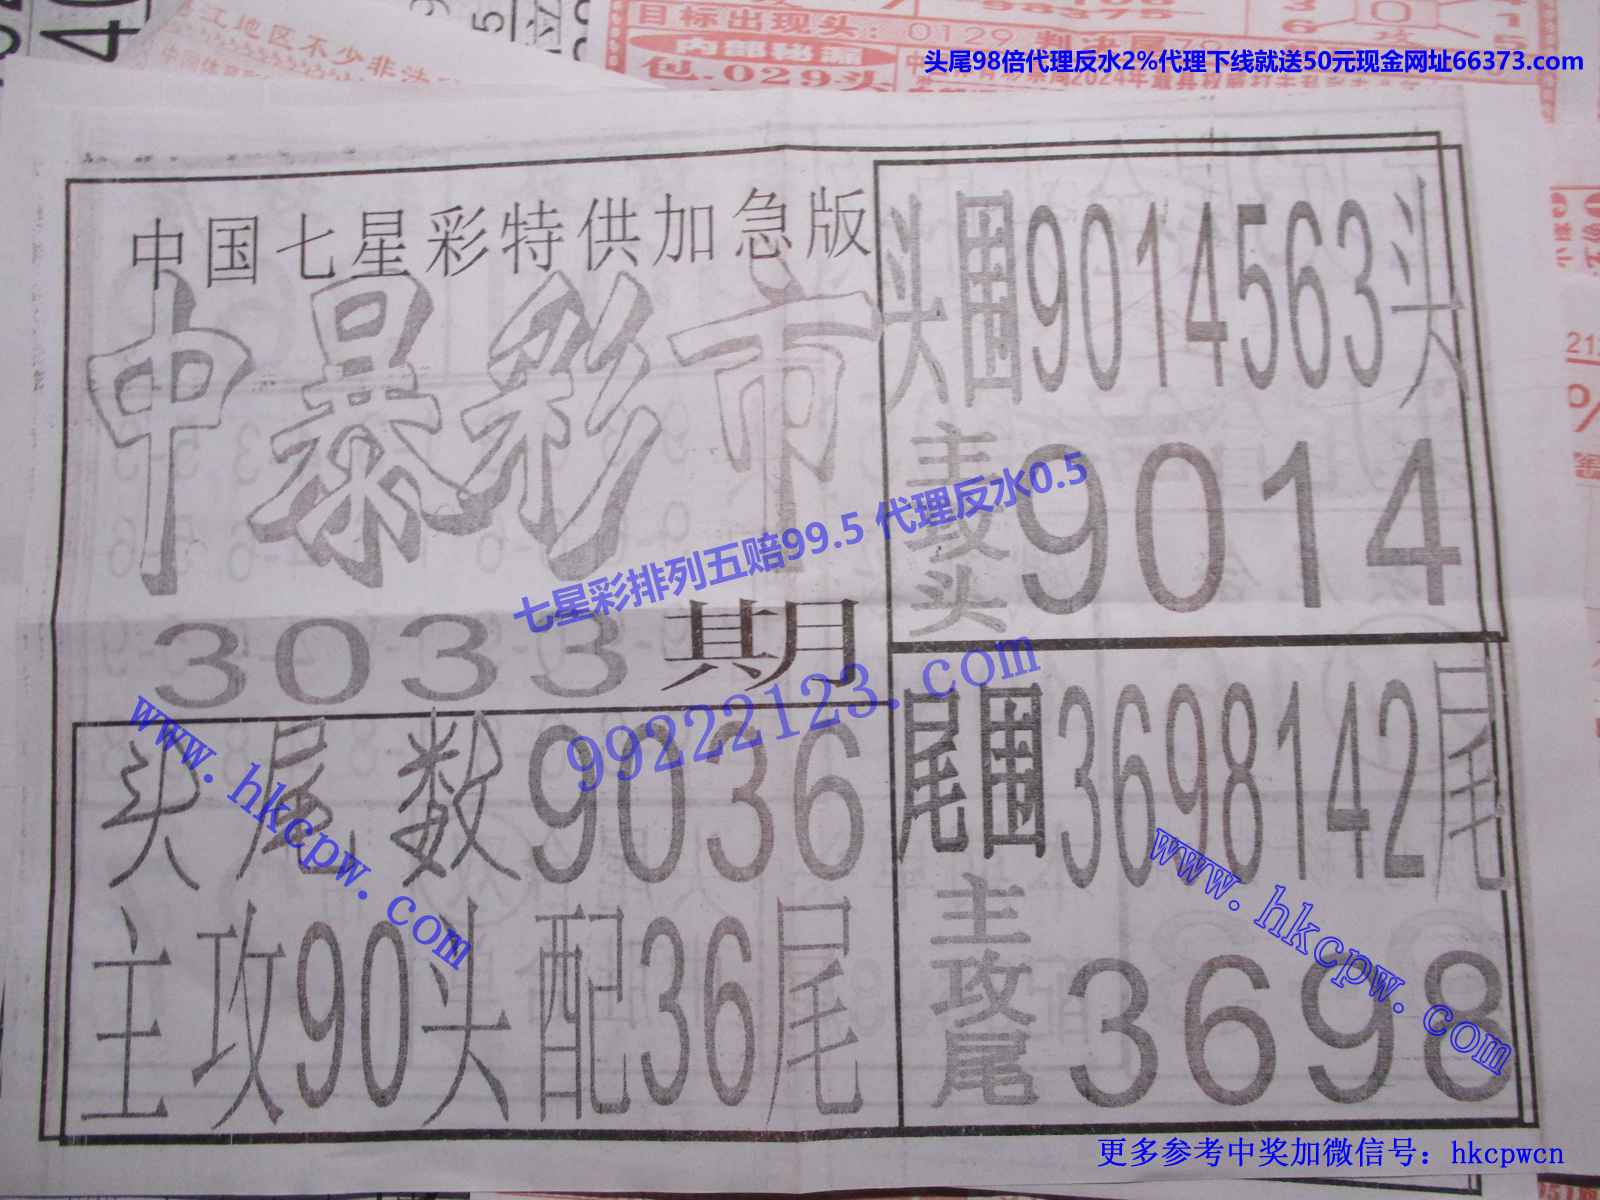 江地区不少非法
目标出现头：0129
98375
内部秘
包.029头
头尾98倍代理反水2%代理下线就送50元现金网址66373.com
中国七星彩特供加急版
中暴彩市
3033期
头尾数9036
主攻90头配36尾
头围9014563头
主攻头9014
尾围3698142尾
主攻尾3698
七星彩排列五赔99.5 代理反水0.5
99222123.com
www.hkcpw.com
www.hkcpw.com
更多参考中奖加微信号：hkcpwcn